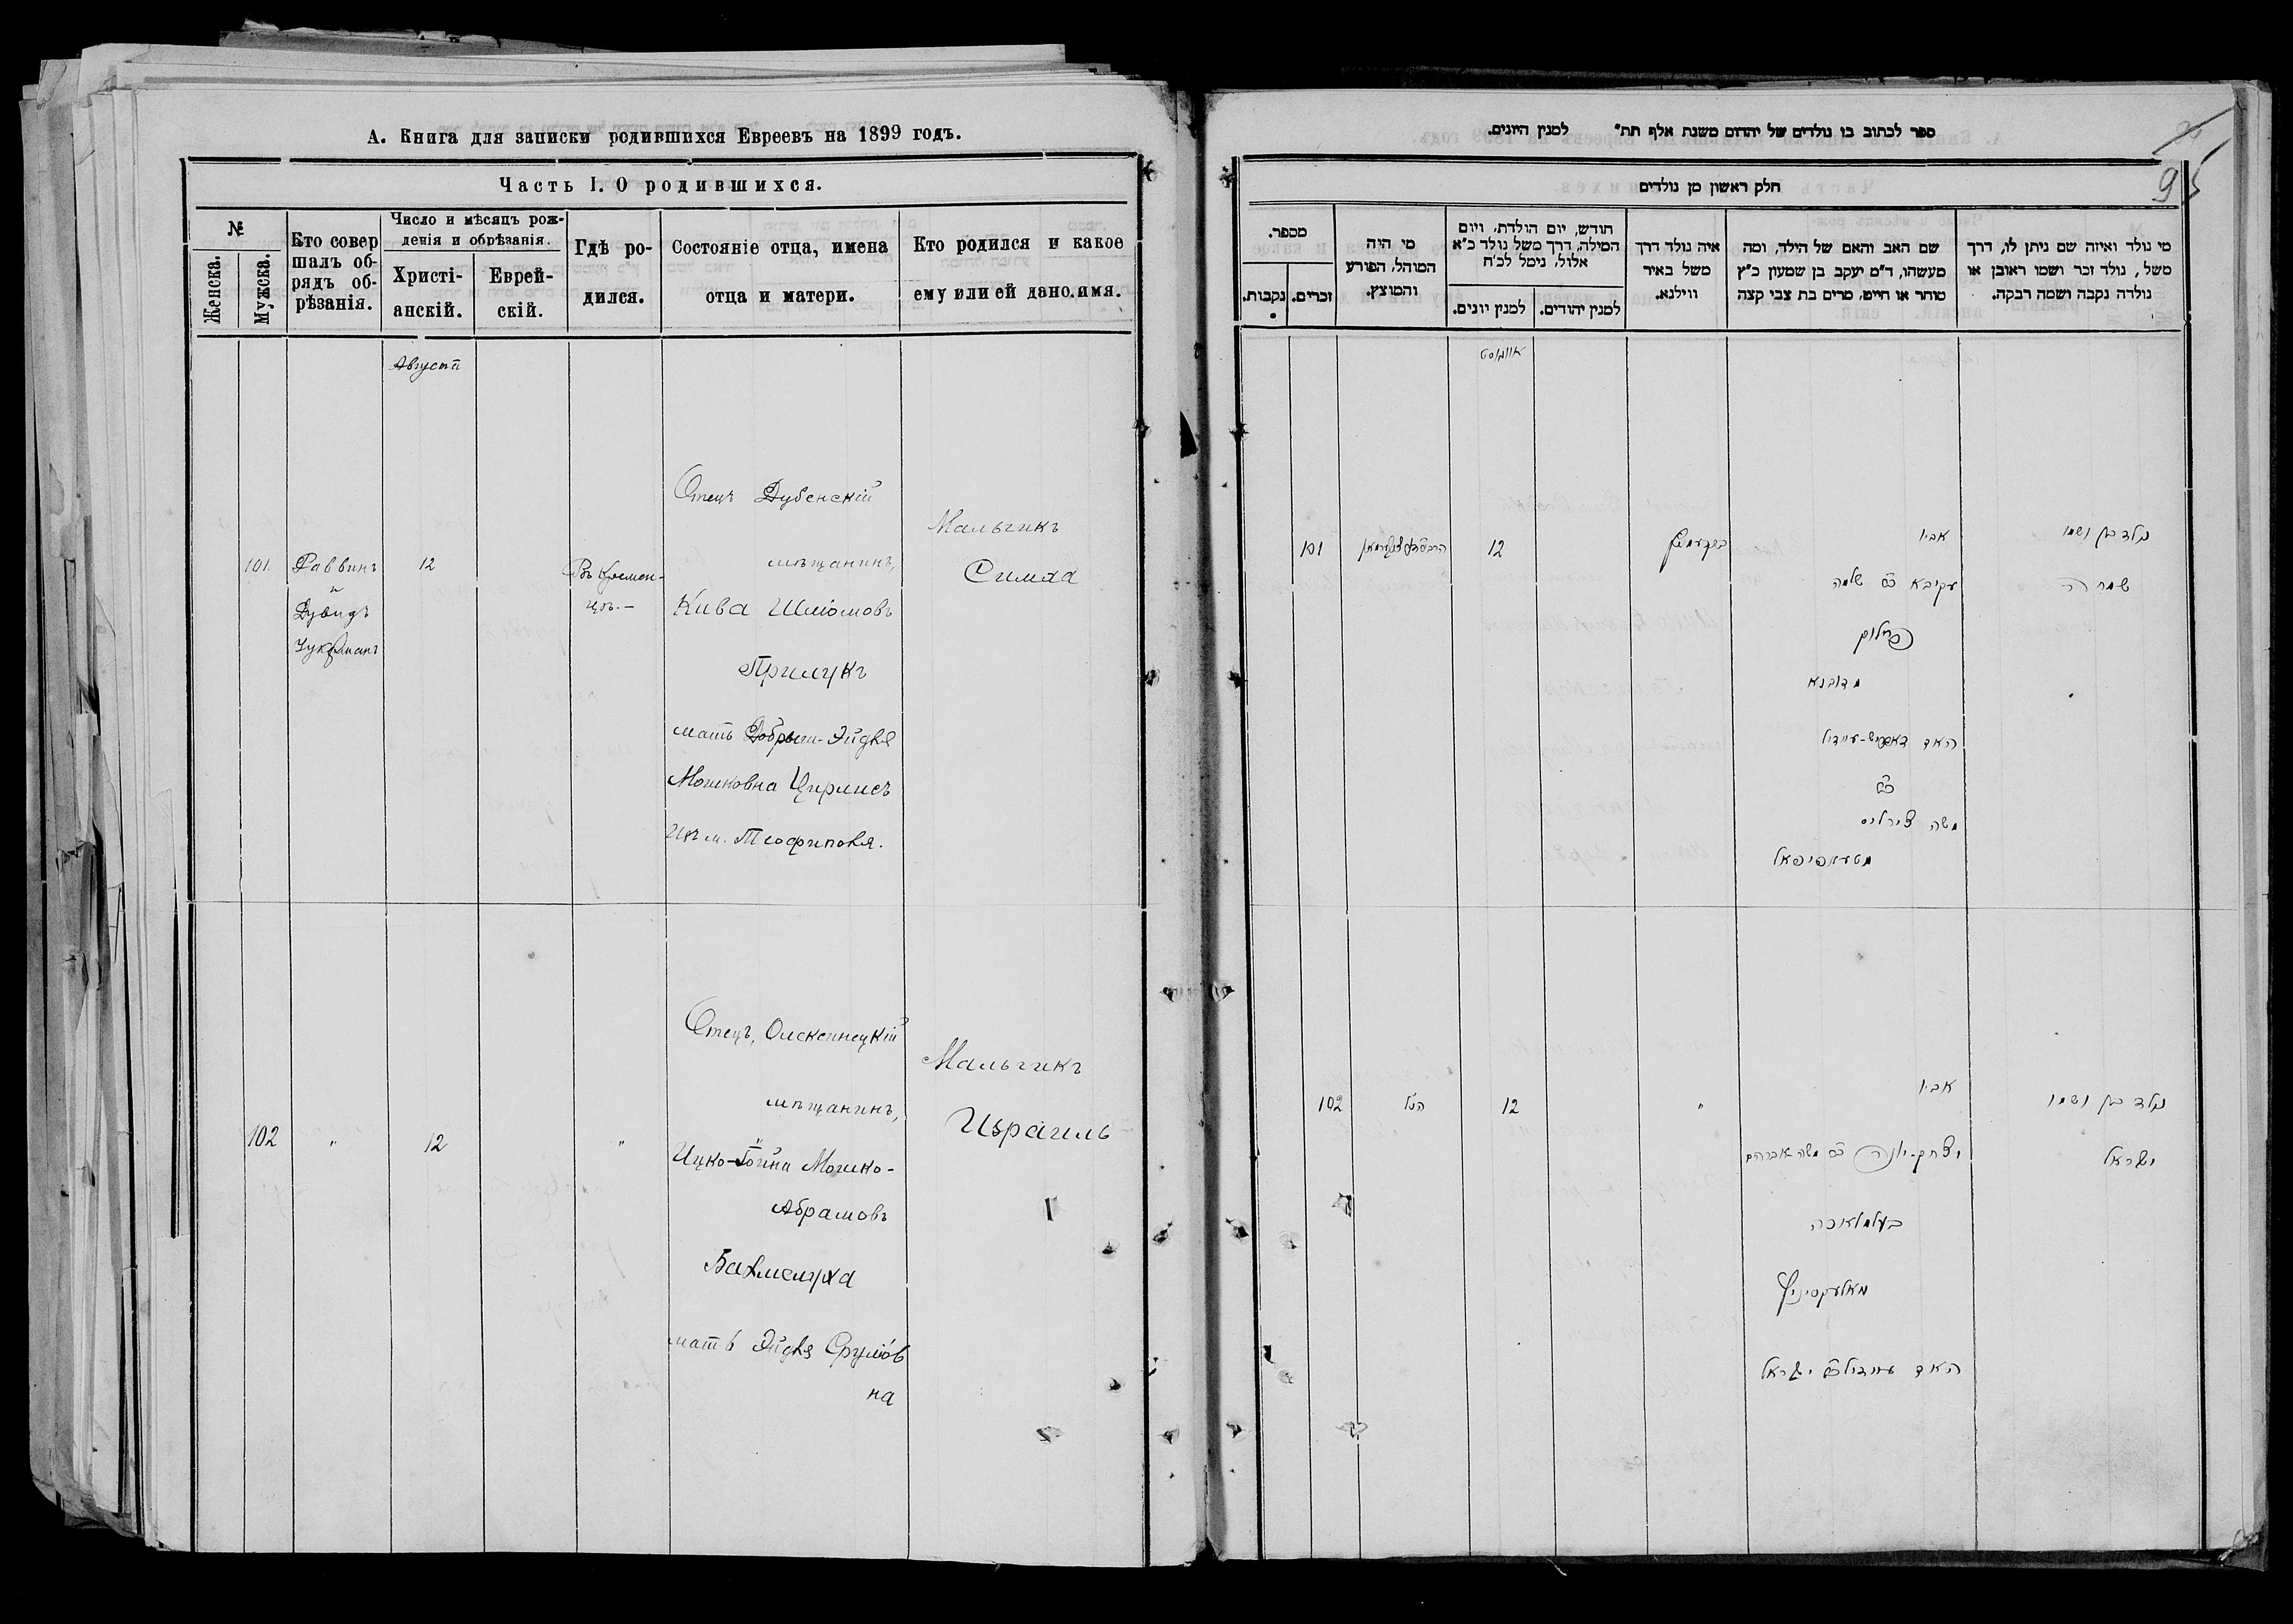 А. Книга для записки родившихся Евреевъ на 1899 годъ.
Часть I. О родившихся.
№
Женска.
Мужска.
Кто совер
шалъ об-
рядъ об-
рѣзанія.
Число и мѣсяцъ рож-
денія и обрѣзанія.
Христі-
анскій.
Еврей-
скій.
Гдѣ ро-
дился.
Состояніе отца, имена
отца и матери.
Кто родился и какое
ему или ей дано.имя.
Августа
101
Раввинъ
и
Дувидъ
12
Въ Кремен-
цѣ.—
Отецъ Дубенскій
мѣщанинъ,
Кива Шліомовъ
Прилукъ
мать Добрыш-Эйдля
Мошковна Цирлисъ
Изъ м. Теофиполя.
Мальчикъ
Симха
102
"
12
"
Отецъ, Олексинецкій
мѣщанинъ,
Ицко-Іойна Мошко-
Абрамовъ
мать Эйдля Срулiов
на
Мальчикъ
Израиль
ספר לכתוב בו נולדים של יהדום משנת אלף תת״ למנין היונים.
95
חלק ראשון מן נולדים
מספר.
נקבות.
זכרים.
מי היה
המוהל, הפורע
והמוצץ.
חודש, יום הולדת, ויום
המילה, דרך משל נולד כ״א
אלול, נימל לכ׳ח
למנין יונים.
למנין יהודים.
איה נולד דרך
משל באיר
ווילנא.
שם האב והאם של הילד, ומה
מעשהו, ד״מ יעקב בן שמעון כ״ץ
סוחר או חייט, מרים בת צבי קצה
מי נולד ואיזה שם ניתן לו, דרך
משל, נולד זכר ושמו ראובן או
נולדה נקבה ושמה רבקה.
אוגוסט
101
12
אביו
עקיבא שלמה
פרילוק
מדובנא
האם דאברוש-איידיל
משה צירליס
מטעאפיפאל
נולד בן ושמו
שמחה
102
הנ״ל
12
"
אביו
יצחק-יונה משה אברהם
בעלמלאכה
מאלעקסיניץ
האם איידיל ישראל
נולד בן ושמו
ישראל